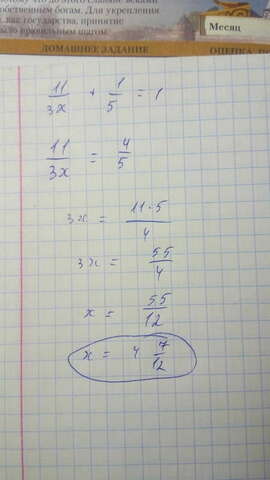 собственным богам. Для укрепления
как государства, принятие
было правильным шагом.
Месяц
ДОМАШНЕЕ ЗАДАНИЕ
ОЦЕНКА
11/3x + 1/5 = 1
11/3x = 4/5
3x = 11·5/4
3x = 55/4
x = 55/12
x = 4 7/12